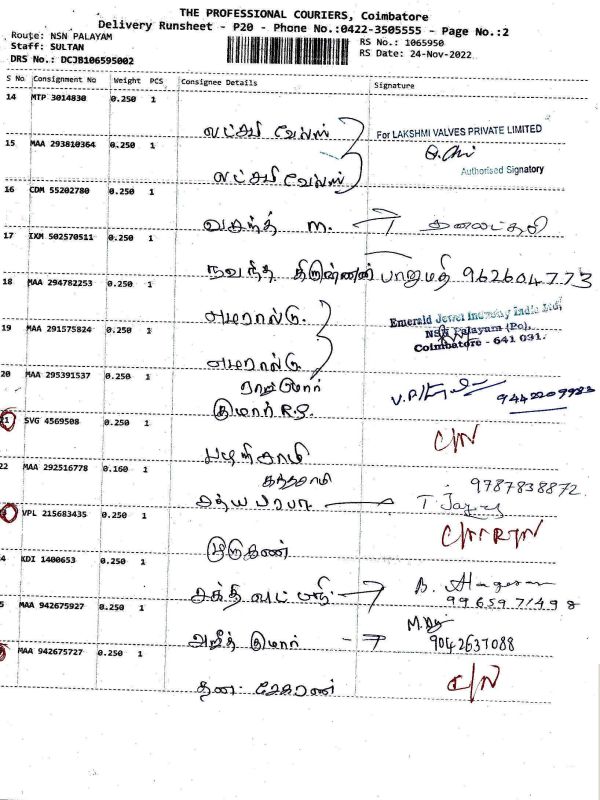 THE PROFESSIONAL COURIERS, Coimbatore
Delivery Runsheet - P20 - Phone No.:0422-3505555 - Page No.:2
Route: NSN PALAYAM
RS No.: 1065950
Staff: SULTAN
RS Date: 24-Nov-2022
DRS No.: DCJB106595002
S No Consignment No Weight PCS Consignee Details Signature
14 MTP 3014830 0.250 1
லட்சுமி வேல்ஸ்
For LAKSHMI VALVES PRIVATE LIMITED
15 MAA 293810364 0.250 1
Authorised Signatory
லட்சுமி வேல்ஸ்
16 CDM 55202780 0.250 1
வசந்த் m.
17 IXM 502570511 0.250 1
பானுமதி 9626604773
18 MAA 294782253 0.250 1
எமரால்டு
Emerald Jewel Industry India Ltd,
NSN Palayam (Po),
Coimbatore - 641 031.
19 MAA 291575824 0.250 1
எமரால்டு
20 MAA 295391537 0.250 1
ராஜ்குமார்
குமார் R.S.
9442209983
21 SVG 4569508 0.250 1
C/N
பழனிசாமி
22 MAA 292516778 0.160 1
கந்தசாமி
9787838872
சத்யபிரபா
VPL 215683435 0.250 1
முருகன்
4 KDI 1400653 0.250 1
சக்தி
99659 71498
5 MAA 942675927 0.250 1
அஜீத் குமார்
9042637088
MAA 942675727 0.250 1
C/N
தன சேகரன்